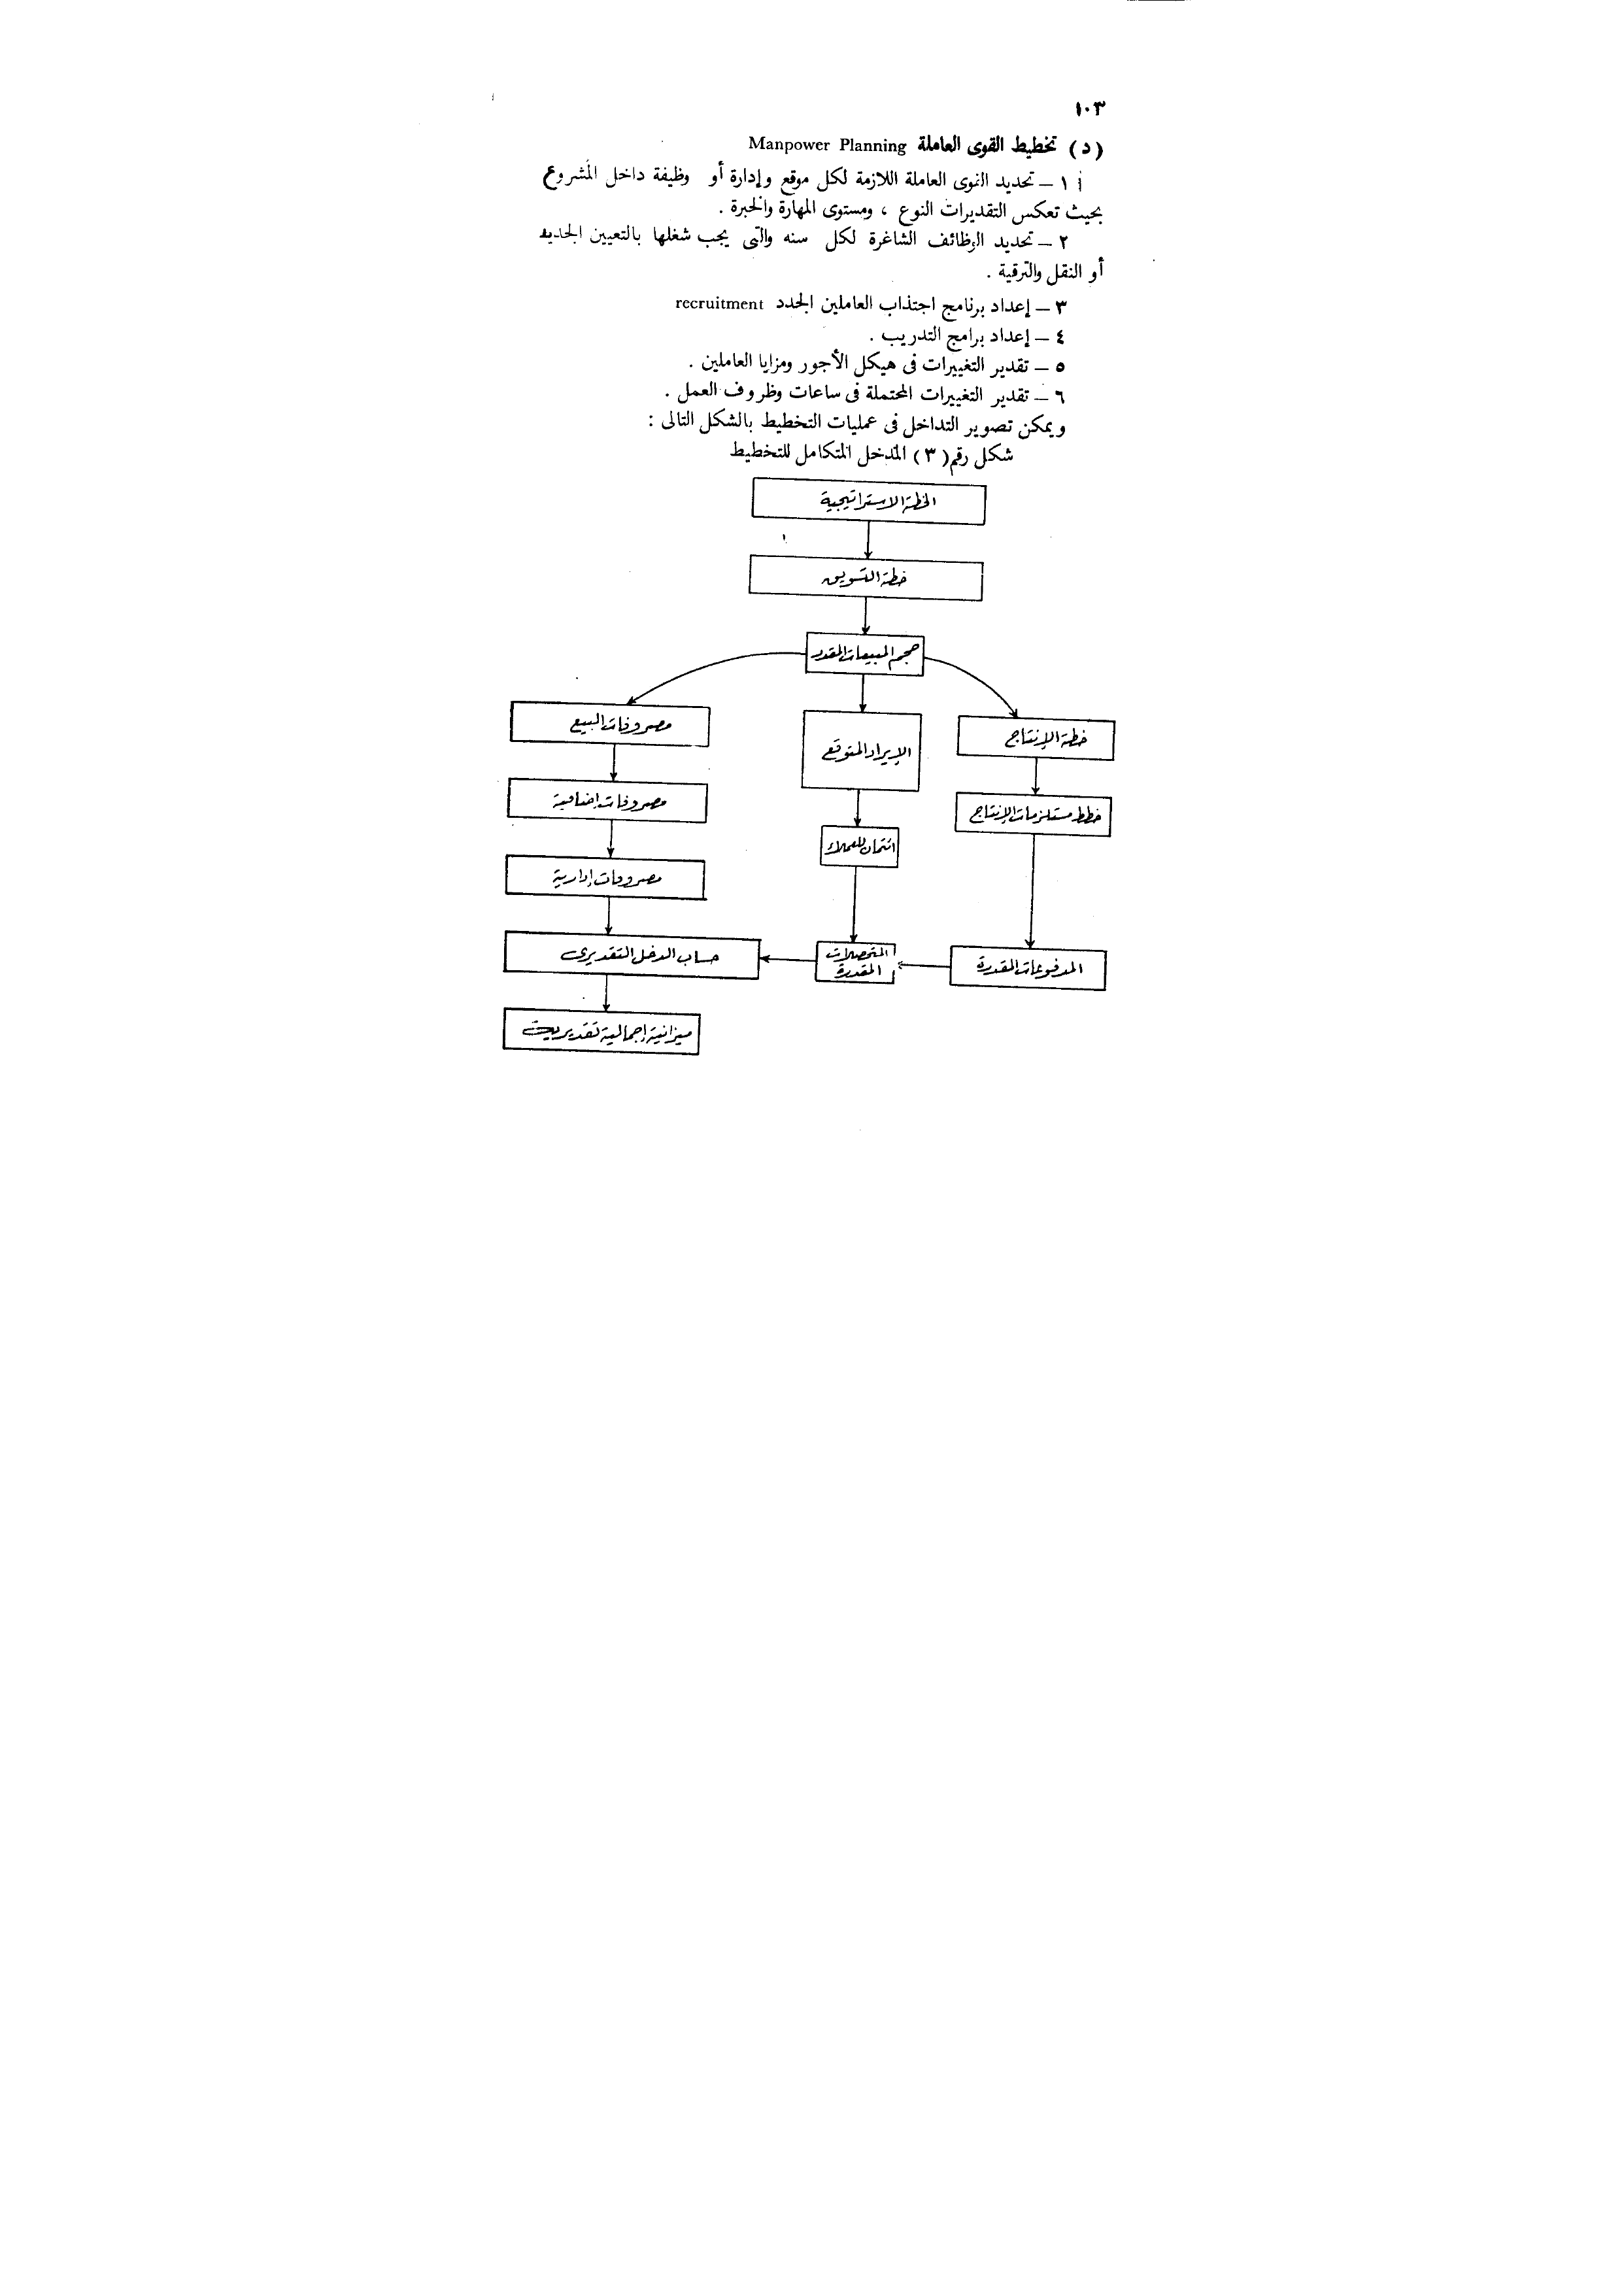 ١٠٣
(د) تخطيط القوى العاملة Manpower Planning
١ — تحديد القوى العاملة اللازمة لكل موقع وإدارة أو وظيفة داخل المشروع
بحيث تعكس التقديرات النوع ، ومستوى المهارة والخبرة .
٢ — تحديد الوظائف الشاغرة لكل سنه والتى يجب شغلها بالتعيين الجديد
أو النقل والترقية .
٣ — إعداد برنامج اجتذاب العاملين الجدد recruitment
٤ — إعداد برامج التدريب .
٥ — تقدير التغييرات فى هيكل الأجور ومزايا العاملين .
٦ — تقدير التغييرات المحتملة فى ساعات وظروف العمل .
ويمكن تصوير التداخل فى عمليات التخطيط بالشكل التالى :
شكل رقم (٣) المدخل المتكامل للتخطيط
الخطة الاستراتيجية
خطة التسويق
حجم المبيعات المقدر
خطة الإنتاج
خطط مستلزمات الإنتاج
المدفوعات المقدرة
الإيراد المتوقع
ائتمان للعملاء
المتحصلات
المقدرة
مصروفات البيع
مصروفات إضافية
مصروفات إدارية
حساب الدخل التقديرى
ميزانية إجمالية تقديرية